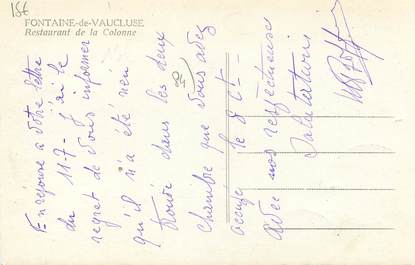 15€
FONTAINE-de-VAUCLUSE
Restaurant de la Colonne
En réponse a votre lettre
du 11-7- j'ai le
regret de vous informer
qu'il n'a été rien
trouvé dans les deux
chambre que vous avez
occupé le 8 ct-
avec nos respectueuses
salutations